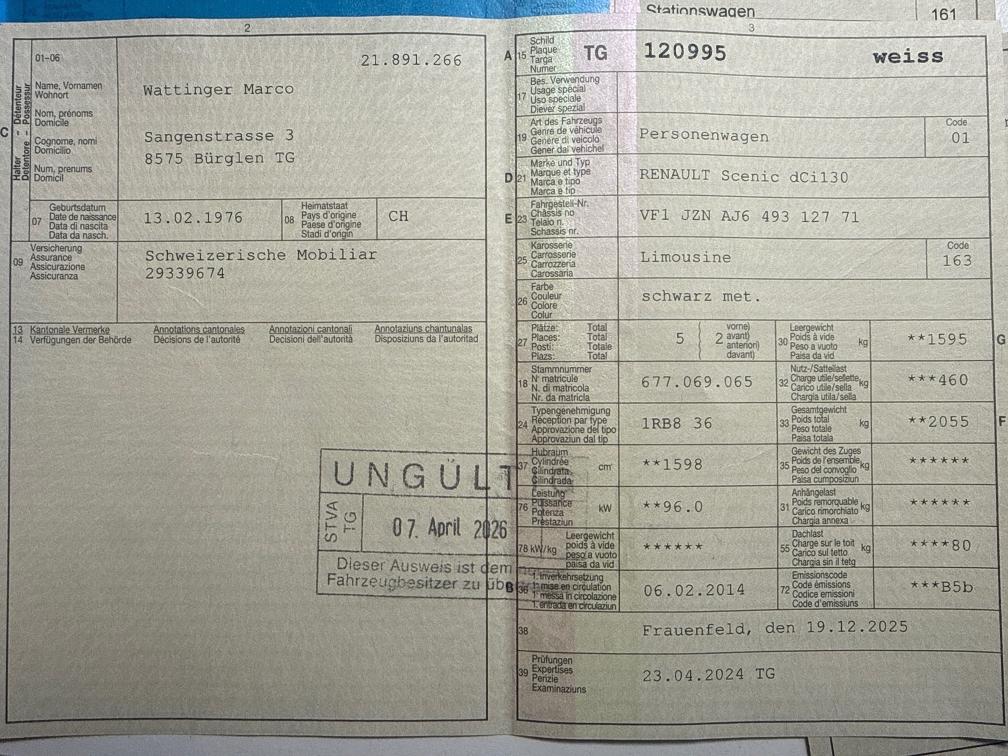 Stationswagen
161
2
01-06
21.891.266
C
Halter - Détenteur
Detentore - Possessur
Name, Vornamen
Wohnort
Nom, prénoms
Domicile
Cognome, nomi
Domicilio
Num, prenums
Domicil
Wattinger Marco
Sangenstrasse 3
8575 Bürglen TG
07
Geburtsdatum
Date de naissance
Data di nascita
Data da nasch.
13.02.1976
08
Heimatstaat
Pays d'origine
Paese d'origine
Stadi d'origin
CH
09
Versicherung
Assurance
Assicurazione
Assicuranza
Schweizerische Mobiliar
29339674
13 Kantonale Vermerke
14 Verfügungen der Behörde
Annotations cantonales
Décisions de l'autorité
Annotazioni cantonali
Decisioni dell'autorità
Annotaziuns chantunalas
Disposiziuns da l'autoritad
UNGÜLT
STVA
TG
07. April 2026
Dieser Ausweis ist dem
Fahrzeugbesitzer zu üb
3
A
15
Schild
Plaque
Targa
Numer
TG
120995
weiss
17
Bes. Verwendung
Usage spécial
Uso speciale
Diever spezial
19
Art des Fahrzeugs
Genre de véhicule
Genere di veicolo
Gener dal vehichel
Personenwagen
Code
01
D
21
Marke und Typ
Marque et type
Marca e tipo
Marca e tip
RENAULT Scenic dCi130
E
23
Fahrgestell-Nr.
Châssis no
Telaio n.
Schassis nr.
VF1 JZN AJ6 493 127 71
25
Karosserie
Carrosserie
Carrozzeria
Carossaria
Limousine
Code
163
26
Farbe
Couleur
Colore
Colur
schwarz met.
27
Plätze: Total
Places: Total
Posti: Totale
Plazs: Total
5
2
vorne)
avant)
anteriori)
davant)
30
Leergewicht
Poids à vide
Peso a vuoto
Paisa da vid
kg
**1595
G
18
Stammnummer
N° matricule
N. di matricola
Nr. da matricla
677.069.065
32
Nutz-/Sattellast
Charge utile/sellette
Carico utile/sella
Chargia utila/sella
kg
***460
24
Typengenehmigung
Réception par type
Approvazione del tipo
Approvaziun dal tip
1RB8 36
33
Gesamtgewicht
Poids total
Peso totale
Paisa totala
kg
**2055
F
37
Hubraum
Cylindrée
Cilindrata
Cilindrada
cm³
**1598
35
Gewicht des Zuges
Poids de l'ensemble
Peso del convoglio
Paisa cumposiziun
kg
******
76
Leistung
Puissance
Potenza
Prestaziun
kW
**96.0
31
Anhängelast
Poids remorquable
Carico rimorchiato
Chargia annexa
kg
******
78 kW/kg
Leergewicht
poids à vide
peso a vuoto
paisa da vid
******
55
Dachlast
Charge sur le toit
Carico sul tetto
Chargia sin il tetg
kg
****80
B
36
1. Inverkehrsetzung
1re mise en circulation
1a messa in circolazione
1. entrada en circulaziun
06.02.2014
72
Emissionscode
Code émissions
Codice emissioni
Code d'emissiuns
***B5b
38
Frauenfeld, den 19.12.2025
39
Prüfungen
Expertises
Perizie
Examinaziuns
23.04.2024 TG